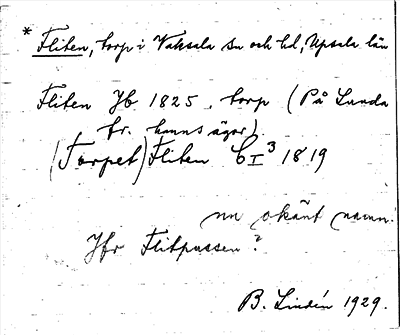 * Fliten, torp i Vaksala sn och hd, Upsala län
Fliten Jb 1825, torp (På Lunda
by. hemms ägor)
(Torpet) Fliten C I 3 1819
nu okänt namn.
Jfr Flitpussen?
B. Lindén 1929.